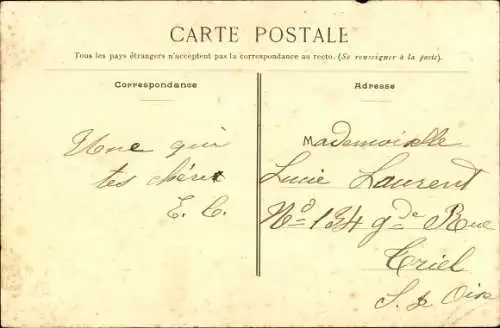 CARTE POSTALE
Tous les pays étrangers n'acceptent pas la correspondance au recto. (Se renseigner à la poste).
Correspondance
Une qui
tes chéri
E. C.
Adresse
Mademoiselle
Lucie Laurent
No 134 gde Rue
Triel
S. & Oise